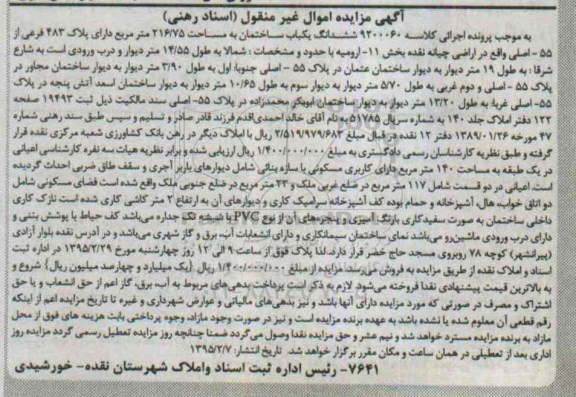 آگهی مزایده اموال غیر منقول (اسناد رهنی)
به موجب پرونده اجرائی کلاسه ۹۲۰۰۰۶۰ ششدانگ یکباب ساختمان به مساحت ۲۱۶/۷۵ متر مربع دارای پلاک ۴۸۳ فرعی از
۵۵ - اصلی واقع در اراضی چیانه نقده بخش ۱۱- ارومیه با حدود و مشخصات : شمالا به طول ۱۴/۵۵ متر دیوار و درب ورودی است به شارع
شرقا : به طول ۱۹ متر دیوار به دیوار ساختمان عثمان در پلاک ۵۵ - اصلی جنوبا: اول به طول ۳/۹۰ متر دیوار به دیوار ساختمان مجاور در
پلاک ۵۵ - اصلی و دوم غربی به طول ۵/۷۰ متر دیوار به دیوار سوم به طول ۱۰/۶۵ متر دیوار به دیوار ساختمان اسعد آتش پنجه در پلاک
۵۵- اصلی غربا: به طول ۱۳/۲۰ متر دیوار به دیوار ساختمان ابوبکر محمدزاده در پلاک ۵۵- اصلی سند مالکیت ذیل ثبت ۱۹۴۹۳ صفحه
۱۲۲ دفتر املاک جلد ۱۴۰ به شماره سریال ۵۱۷۸۵ به نام آقای خالد احمدی اقدم فرزند قادر صادر و تسلیم و سپس طبق سند رهنی شماره
۴۷ مورخه ۱۳۸۹/۰۱/۲۶ دفتر ۱۲ نقده در قبال مبلغ ۲/۵۱۹/۹۷۹/۶۸۳ ریال با املاک دیگر در رهن بانک کشاورزی شعبه مرکزی نقده قرار
گرفته و طبق نظریه کارشناسان رسمی دادگستری به مبلغ ۱/۴۰۰/۰۰۰/۰۰۰ ریال ارزیابی شده و برابر نظریه هیات سه نفره کارشناسی اعیانی
در یک طبقه به مساحت ۱۴۰ متر مربع دارای کاربری مسکونی با سازه بنائی شامل دیوارهای باربر آجری و سقف طاق ضربی احداث گردیده
است. اعیانی در دو قسمت شامل ۱۱۷ متر مربع در ضلع غربی ملک و ۲۳ متر مربع در ضلع جنوبی ملک واقع شده است فضای مسکونی شامل
دو اتاق خواب، هال، آشپزخانه و حمام بوده کف آشپزخانه سرامیک کاری و دیوارهای آن به ارتفاع ۲ متر کاشی کاری شده است نازک کاری
داخلی ساختمان به صورت سفیدکاری بارنگ آمیزی و پنجره‌های آن از نوع PVC با شیشه تک جداره می‌باشد کف حیاط با پوشش بتنی و
دارای درب ورودی ماشین‌رو می‌باشد نمای ساختمان سیمانکاری و دارای انشعابات آب، برق و گاز شهری می‌باشد و در آدرس نقده بلوار آزادی
(پیرانشهر) کوچه ۷۸ روبروی مسجد حاج خضر قرار دارد. لذا پلاک فوق از ساعت ۹ الی ۱۲ روز چهارشنبه مورخ ۱۳۹۵/۲/۲۹ در اداره ثبت
اسناد و املاک نقده از طریق مزایده به فروش می‌رسد. مزایده از مبلغ ۱/۴۰۰/۰۰۰/۰۰۰ ریال (یک میلیارد و چهارصد میلیون ریال) شروع و
به بالاترین قیمت پیشنهادی نقدا فروخته می‌شود لازم به ذکر است پرداخت بدهی‌های مربوط به آب، برق، گاز اعم از حق انشعاب و یا حق
اشتراک و مصرف در صورتی که مورد مزایده دارای آنها باشد و نیز بدهی‌های مالیاتی و عوارض شهرداری و غیره تا تاریخ مزایده اعم از اینکه
رقم قطعی آن معلوم شده یا نشده باشد به عهده برنده مزایده است و نیز در صورت وجود مازاد، وجوه پرداختی بابت هزینه های فوق از محل
مازاد به برنده مزایده مسترد خواهد شد و نیم عشر و حق مزایده نقدا وصول می‌گردد ضمنا چنانچه روز مزایده تعطیل رسمی گردد مزایده روز
اداری بعد از تعطیلی در همان ساعت و مکان مقرر برگزار خواهد شد. تاریخ انتشار: ۱۳۹۵/۲/۷
۷۶۴۱- رئیس اداره ثبت اسناد و املاک شهرستان نقده- خورشیدی